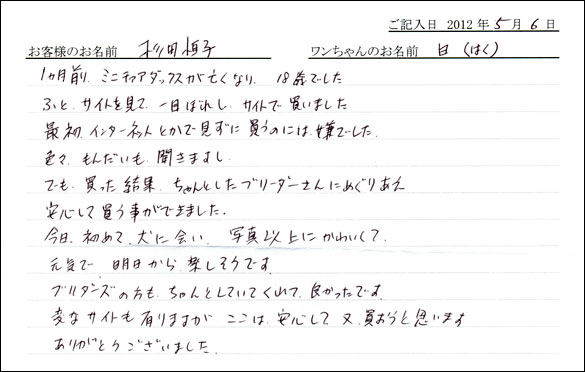 ご記入日 2012年5月6日
お客様のお名前 杉田 順子 ワンちゃんのお名前 白(はく)
1ヵ月前、ミニチュアダックスが亡くなり、18歳でした
ふと、サイトを見て、一目ぼれし、サイトで買いました
最初、インターネットとかで見ずに買うのには、嫌でした。
色々、もんだいも、聞きますし、
でも、買った結果、ちゃんとしたブリーダーさんにめぐりあえ
安心して買う事ができました。
今日、初めて、犬に会い、写真以上にかわいくて、
元気で 明日から 楽しそうです
ブリダンズの方も、ちゃんとしていてくれて、良かったです
変なサイトも有りますが ここは、安心して 又、買おうと思います
ありがとうございました。